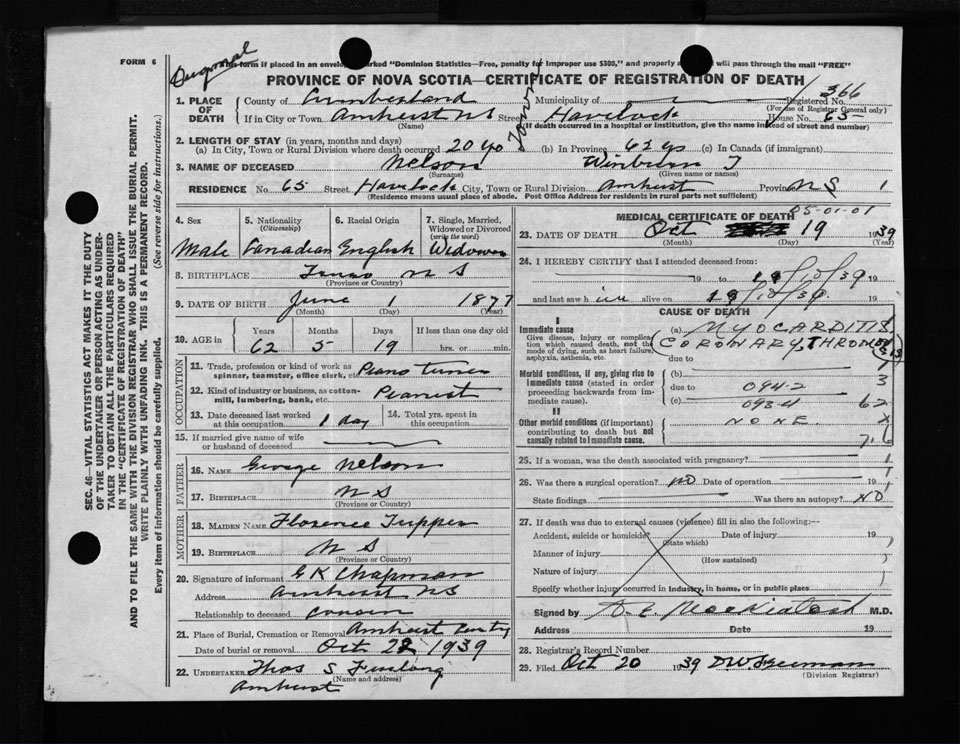 FORM 6
This form if placed in an envelope marked "Dominion Statistics—Free, penalty for improper use $300," and properly will pass through the mail "FREE"
PROVINCE OF NOVA SCOTIA—CERTIFICATE OF REGISTRATION OF DEATH
366
1. PLACE OF DEATH
County of Cumberland Municipality of Registered No.
(For use of Registrar General only)
If in City or Town Amherst NS Street Havelock House No. 65
(Name) (If death occurred in a hospital or institution, give the name instead of street and number)
Town
2. LENGTH OF STAY (in years, months and days)
(a) In City, Town or Rural Division where death occurred 20 yo (b) In Province 62 yo (c) In Canada (if immigrant)
3. NAME OF DECEASED Nelson T
(Surname) (Given name or names)
RESIDENCE No. 65 Street Havelock City, Town or Rural Division Amherst Province NS 1
(Residence means usual place of abode. Post Office Address for residents in rural parts not sufficient)
4. Sex
Male
5. Nationality
(Citizenship)
Canadian
6. Racial Origin
English
7. Single, Married, Widowed or Divorced
(write the word)
Widower
8. BIRTHPLACE Truro N S
(Province or Country)
9. DATE OF BIRTH June 1 1877
(Month) (Day) (Year)
10. AGE in
Years Months Days If less than one day old
62 5 19 hrs. or min.
OCCUPATION
11. Trade, profession or kind of work as spinner, teamster, office clerk, etc. Piano tuner
12. Kind of industry or business, as cotton-mill, lumbering, bank, etc. Pianist
13. Date deceased last worked at this occupation 1 day
14. Total yrs. spent in this occupation
15. If married give name of wife or husband of deceased
FATHER
16. NAME George Nelson
17. BIRTHPLACE N S
(Province or Country)
MOTHER
18. MAIDEN NAME Florence Tupper
19. BIRTHPLACE N S
(Province or Country)
20. Signature of informant G K Chapman
Address Amherst NS
Relationship to deceased Cousin
21. Place of Burial, Cremation or Removal Amherst
Date of burial or removal Oct 22 1939
22. UNDERTAKER Thos S Furlong
(Name and address)
Amherst
MEDICAL CERTIFICATE OF DEATH
05-01-01
23. DATE OF DEATH Oct 19 1939
(Month) (Day) (Year)
24. I HEREBY CERTIFY that I attended deceased from:
19 to 19/10/39 19
and last saw him alive on 19/10/39 19
CAUSE OF DEATH
I
Immediate cause
Give disease, injury or complication which caused death, not the mode of dying, such as heart failure, asphyxia, asthenia, etc.
(a) MYOCARDITIS
CORONARY THROMBOSIS
due to
Morbid conditions, if any, giving rise to immediate cause (stated in order proceeding backwards from immediate cause).
(b) due to 094-2 3
(c) 093-4 62
II
Other morbid conditions (if important) contributing to death but not causally related to immediate cause.
NONE
25. If a woman, was the death associated with pregnancy?
26. Was there a surgical operation? NO Date of operation 19
State findings Was there an autopsy? NO
27. If death was due to external causes (violence) fill in also the following:—
Accident, suicide or homicide? Date of injury 19
(State which)
Manner of injury
(How sustained)
Nature of injury
Specify whether injury occurred in industry, in home, or in public place
Signed by M.D.
Address Date 19
28. Registrar's Record Number
29. Filed Oct 20 1939 D.W. Freeman
(Division Registrar)
SEC. 46—VITAL STATISTICS ACT MAKES IT THE DUTY OF THE UNDERTAKER OR PERSON ACTING AS UNDERTAKER TO OBTAIN ALL THE PARTICULARS REQUIRED IN THE "CERTIFICATE OF REGISTRATION OF DEATH" AND TO FILE THE SAME WITH THE DIVISION REGISTRAR WHO SHALL ISSUE THE BURIAL PERMIT.
WRITE PLAINLY WITH UNFADING INK. THIS IS A PERMANENT RECORD.
Every item of information should be carefully supplied. (See reverse side for instructions.)